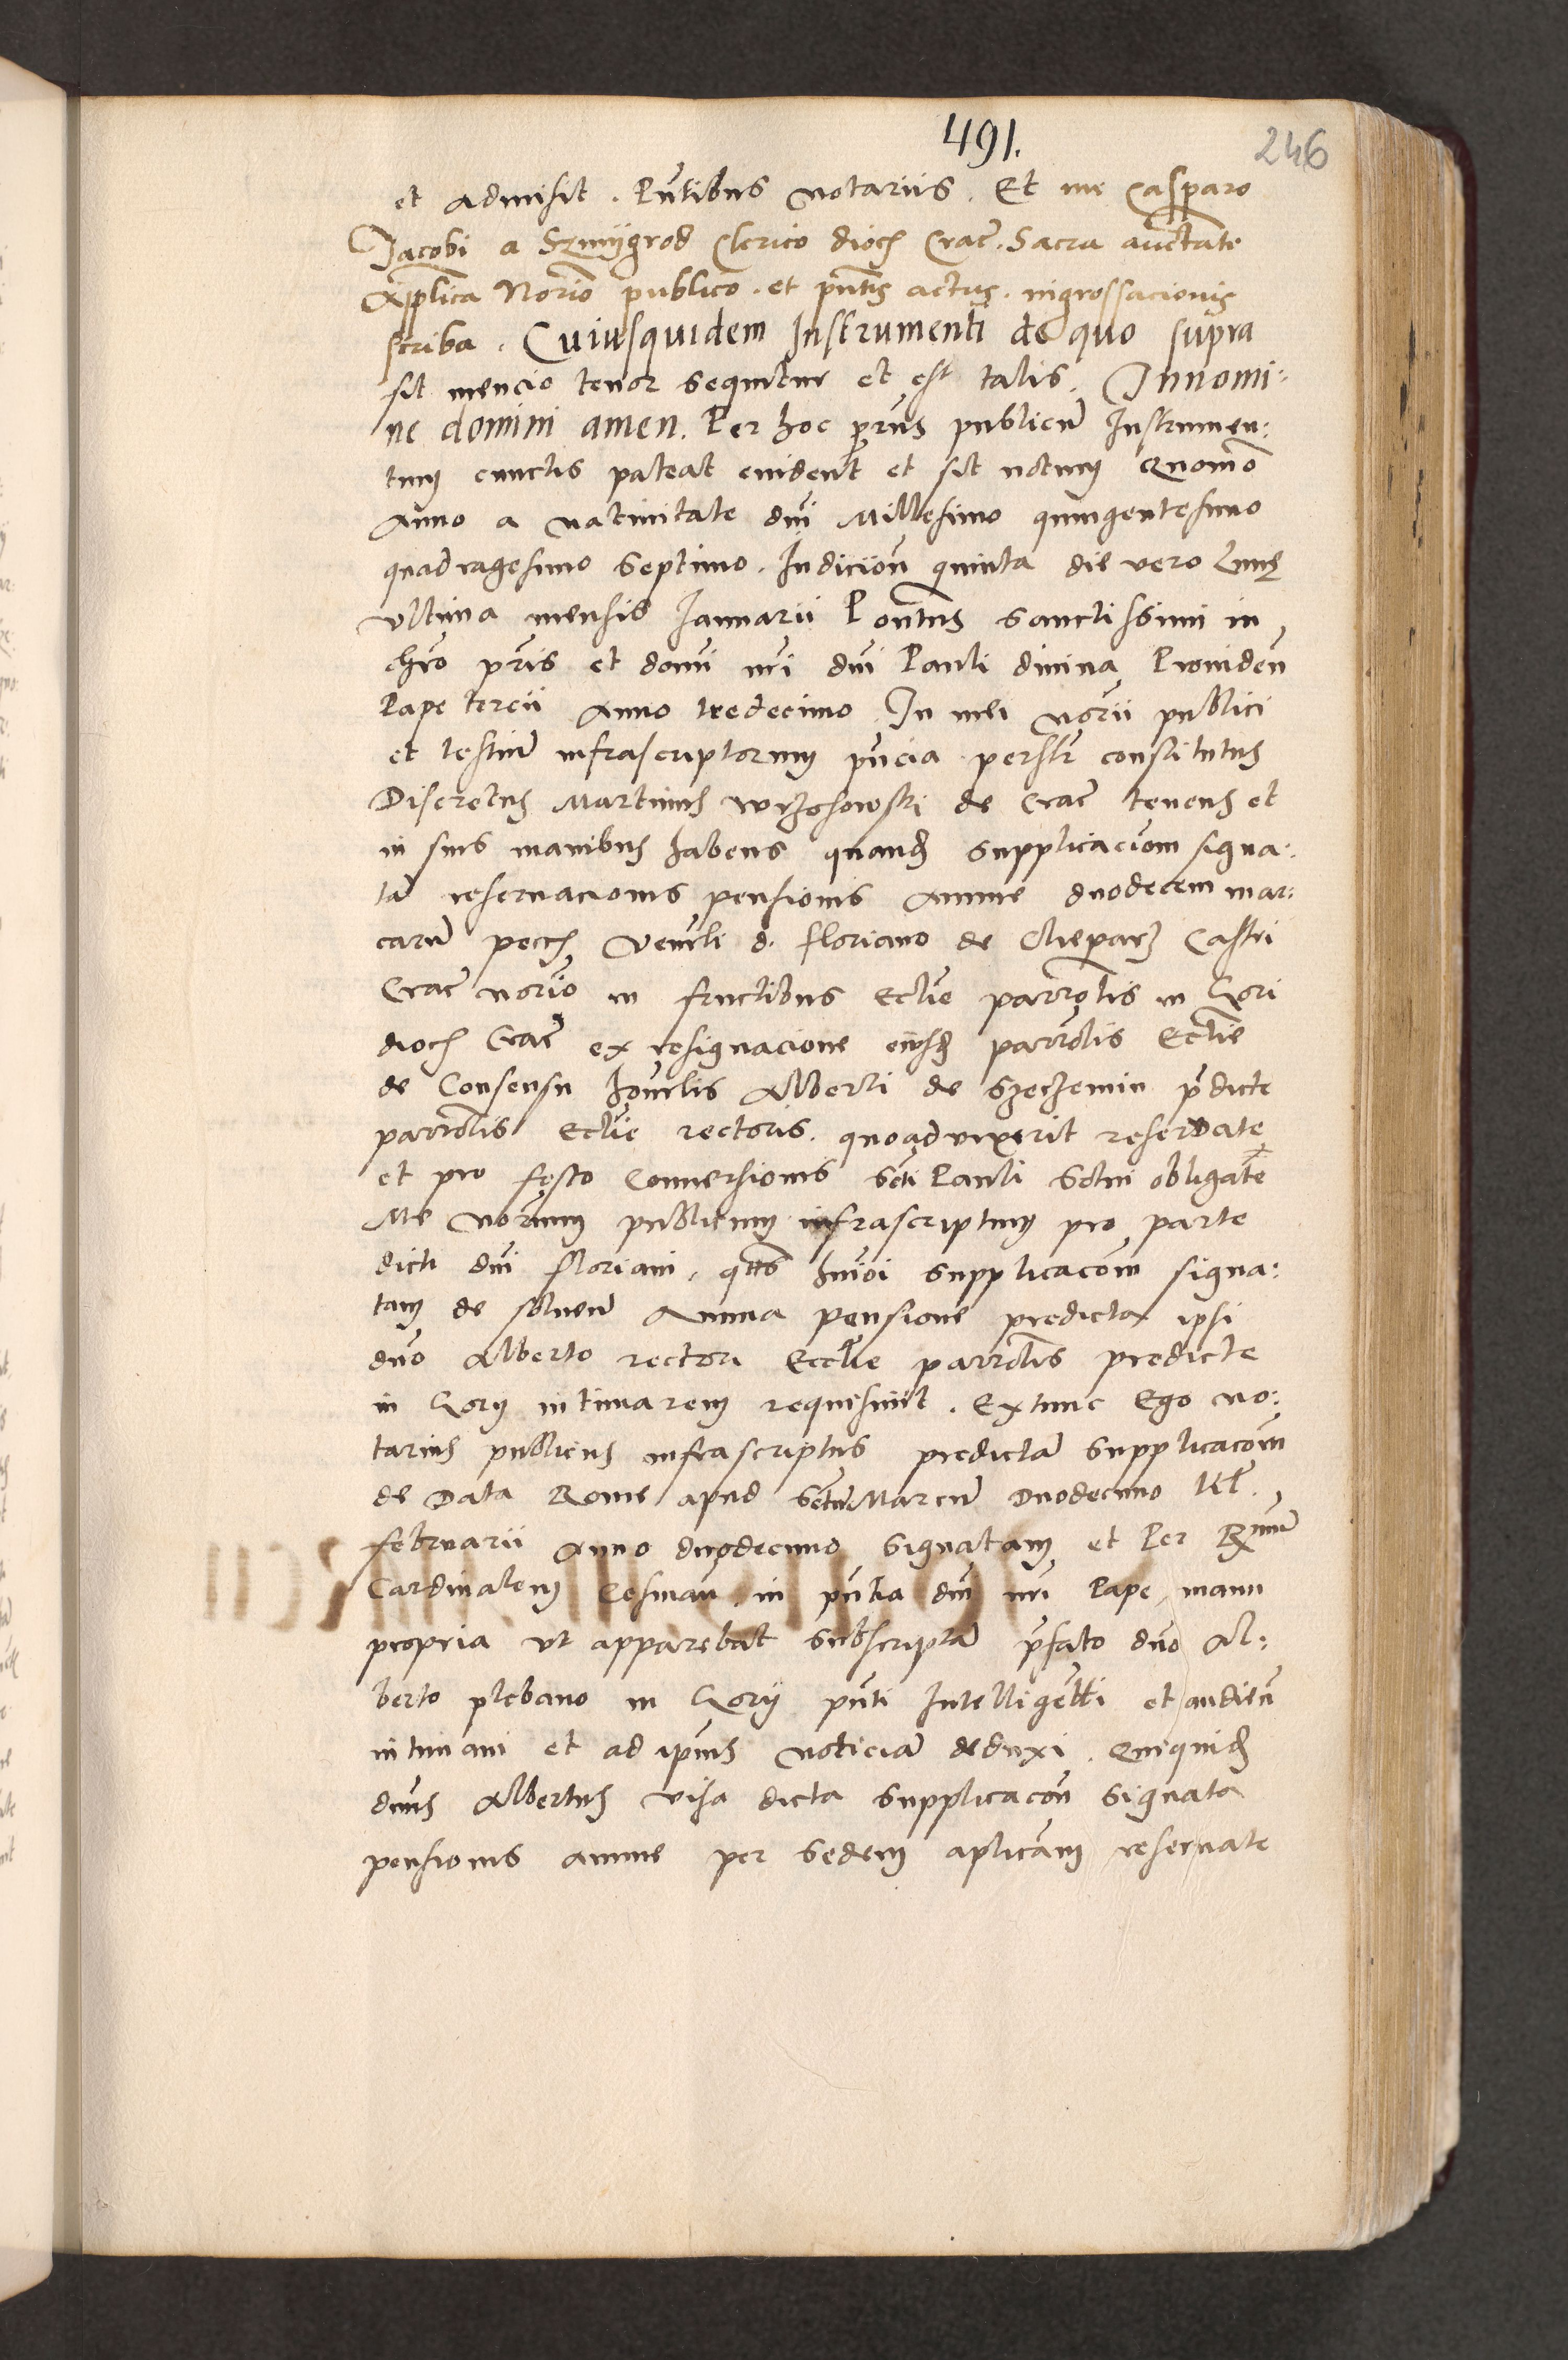 491.
246
et admisit. Pn̄tibus notariis. Et me Casparo
Jacobi a Szmijgrod Clerico dioc̄ Crac̄. Sacra auctate
Ap̄plica Norio publico. et pn̄tis actus. ingrossacionis
scriba. Cuiusquidem Instrumenti de quo supra
fit mencio tenor sequitur et est talis. Innomi:
ne domini amen. Per hoc prn̄s publicū Instrumen:
tum cunctis pateat evident̄ et sit notum Quomō
Anno a nativitate dn̄i Millesimo quingentesimo
quadragesimo septimo. Indiciōn quinta die vero Lunę
ultima mensis Januarii Pontus sanctissimi in
chr̄o pr̄is et domi nr̄i dn̄i Pauli divina Providen̄
Pape tercii Anno tredecimo. In mei norii publici
et testiū infrascriptorum pn̄cia persltr̄ constitutus
Discretus Martinus Wrzosowski de Crac̄ tenens et
in suis manibus habens quand̄ supplicaciom signa:
tā reservacionis pensionis annue duodecem mar:
carū pecc̄ Venrli d. Floriano de Cleparz Castri
Crac̄ norio in fructibus Ecclīe parrolis in Gori
dioc̄ Crac̄ ex resignacione eiusd̄ parrolis Ecclīe
de Consensu honrlis Alberti de Szeczemin p̄dicte
parrolis Ecclīe rectoris. quoad vixerit reservate
et pro festo Conversionis Scti Pauli Solui obligate
Me norium publicum infrascriptum pro parte
dicti dn̄i Floriani. qtts hm̄oi supplicacōm signa:
tam de solven̄ Annua pensione predicta ipsi
dn̄o Alberto rectori Ecclīe parrolis predicte
in Gory intimarem requisiuit. Extunc Ego no:
tarius publicus infrascriptus predictā supplicacōm
de Data Rome apud Sctum Marcū Duodecimo Kl.
februarii Anno duodecimo signatam et Per Rmum
Cardinalem Cesinan̄. in pn̄tia dn̄i nr̄i Pape. manu
propria ut apparebat subscriptā p̄fato dn̄o Al:
berto plebano in Gorij pn̄ti Intelligēti et audien̄
intimavi et ad ipius noticiā deduxi. Quiquid̄
dn̄us Albertus visa dicta supplicacōn signata
pensionis annue per sedem aplicam reservate